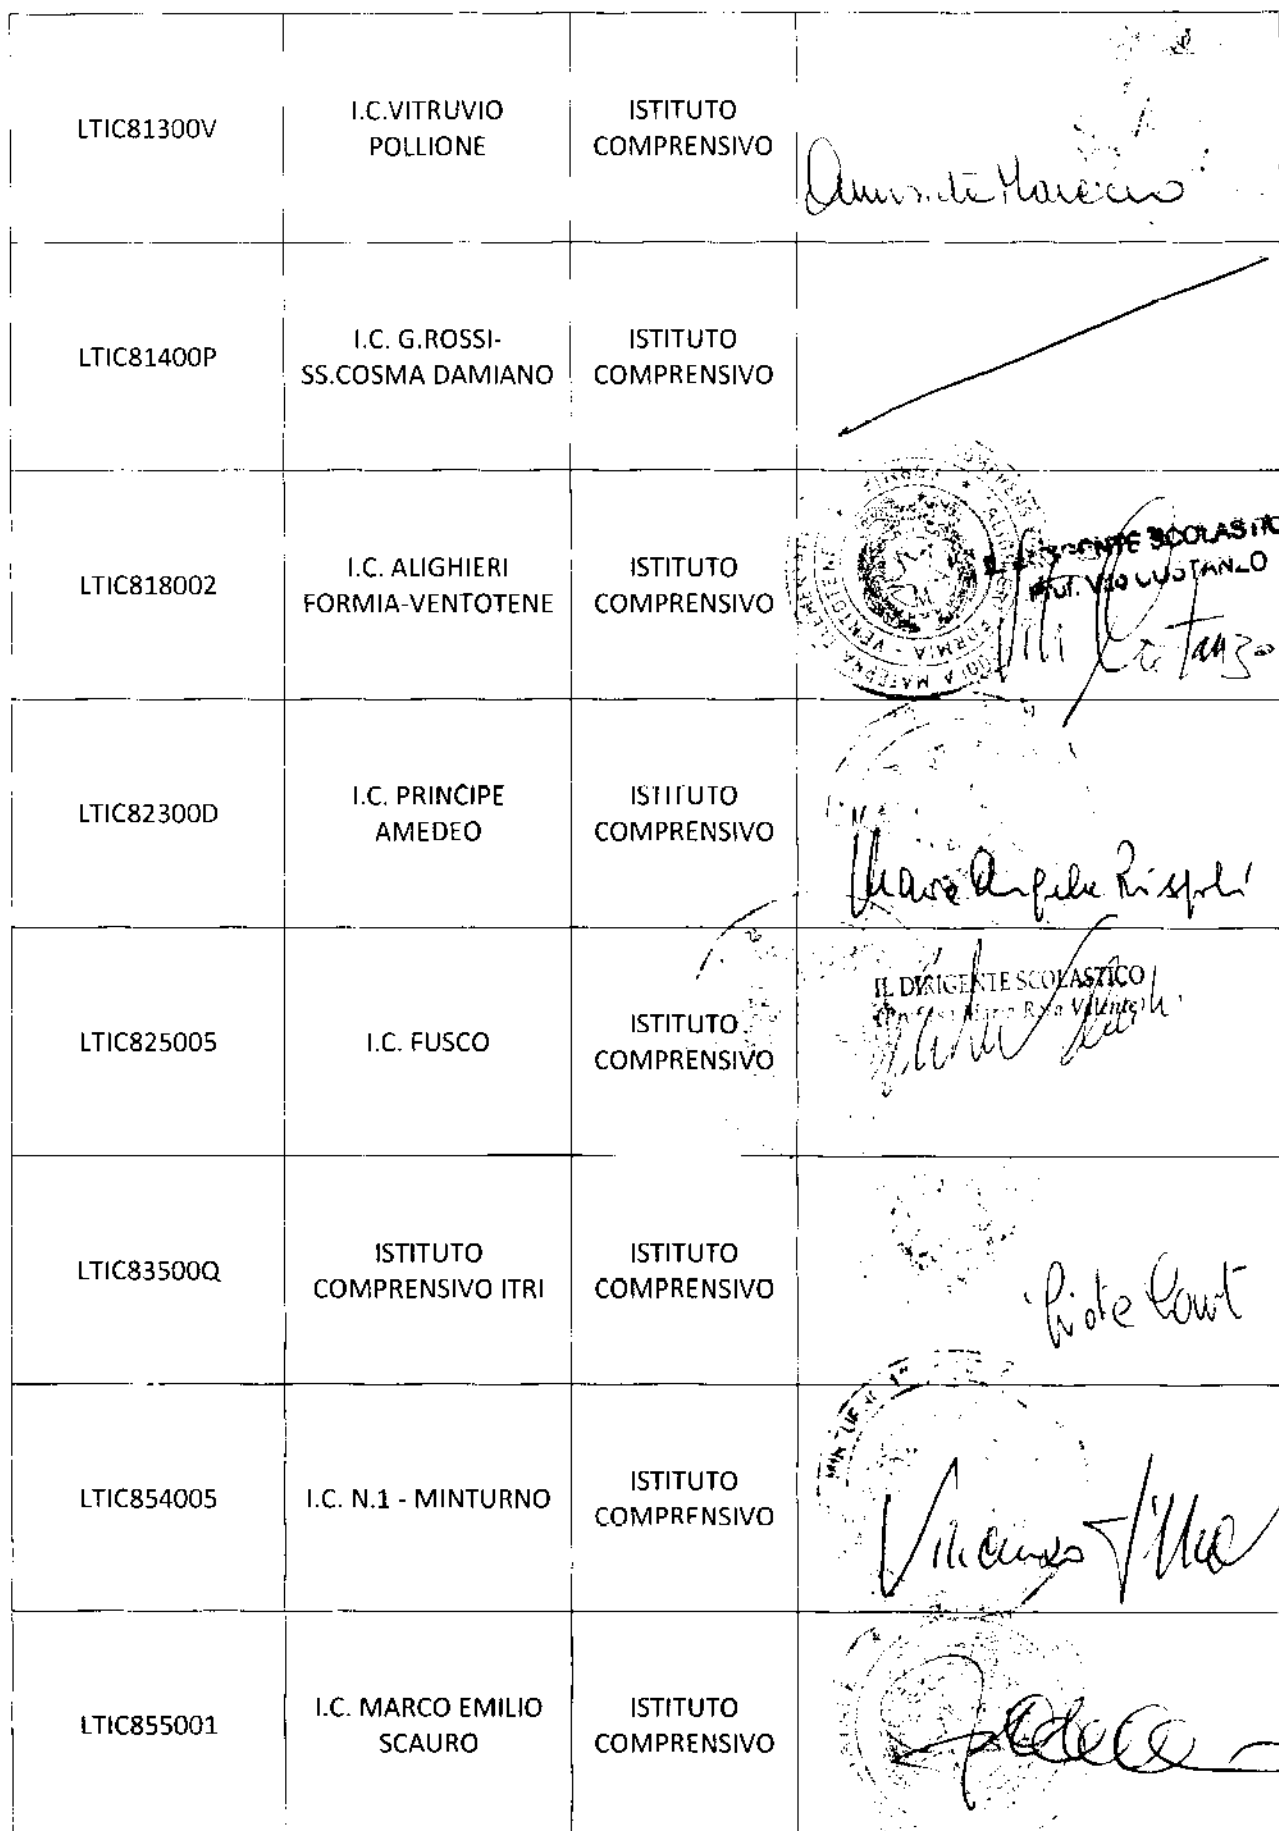 LTIC81300V
I.C.VITRUVIO
POLLIONE
ISTITUTO
COMPRENSIVO
LTIC81400P
I.C. G.ROSSI-
SS.COSMA DAMIANO
ISTITUTO
COMPRENSIVO
LTIC818002
I.C. ALIGHIERI
FORMIA-VENTOTENE
ISTITUTO
COMPRENSIVO
SCOLASTICO
Prof. Vito COSTANZO
Vito Costanzo
FORMIA - VENTOTENE
LTIC82300D
I.C. PRINCIPE
AMEDEO
ISTITUTO
COMPRENSIVO
Maria Angela Rispoli
LTIC825005
I.C. FUSCO
ISTITUTO
COMPRENSIVO
IL DIRIGENTE SCOLASTICO
Maria Rosa
LTIC83500Q
ISTITUTO
COMPRENSIVO ITRI
ISTITUTO
COMPRENSIVO
LTIC854005
I.C. N.1 - MINTURNO
ISTITUTO
COMPRENSIVO
LTIC855001
I.C. MARCO EMILIO
SCAURO
ISTITUTO
COMPRENSIVO